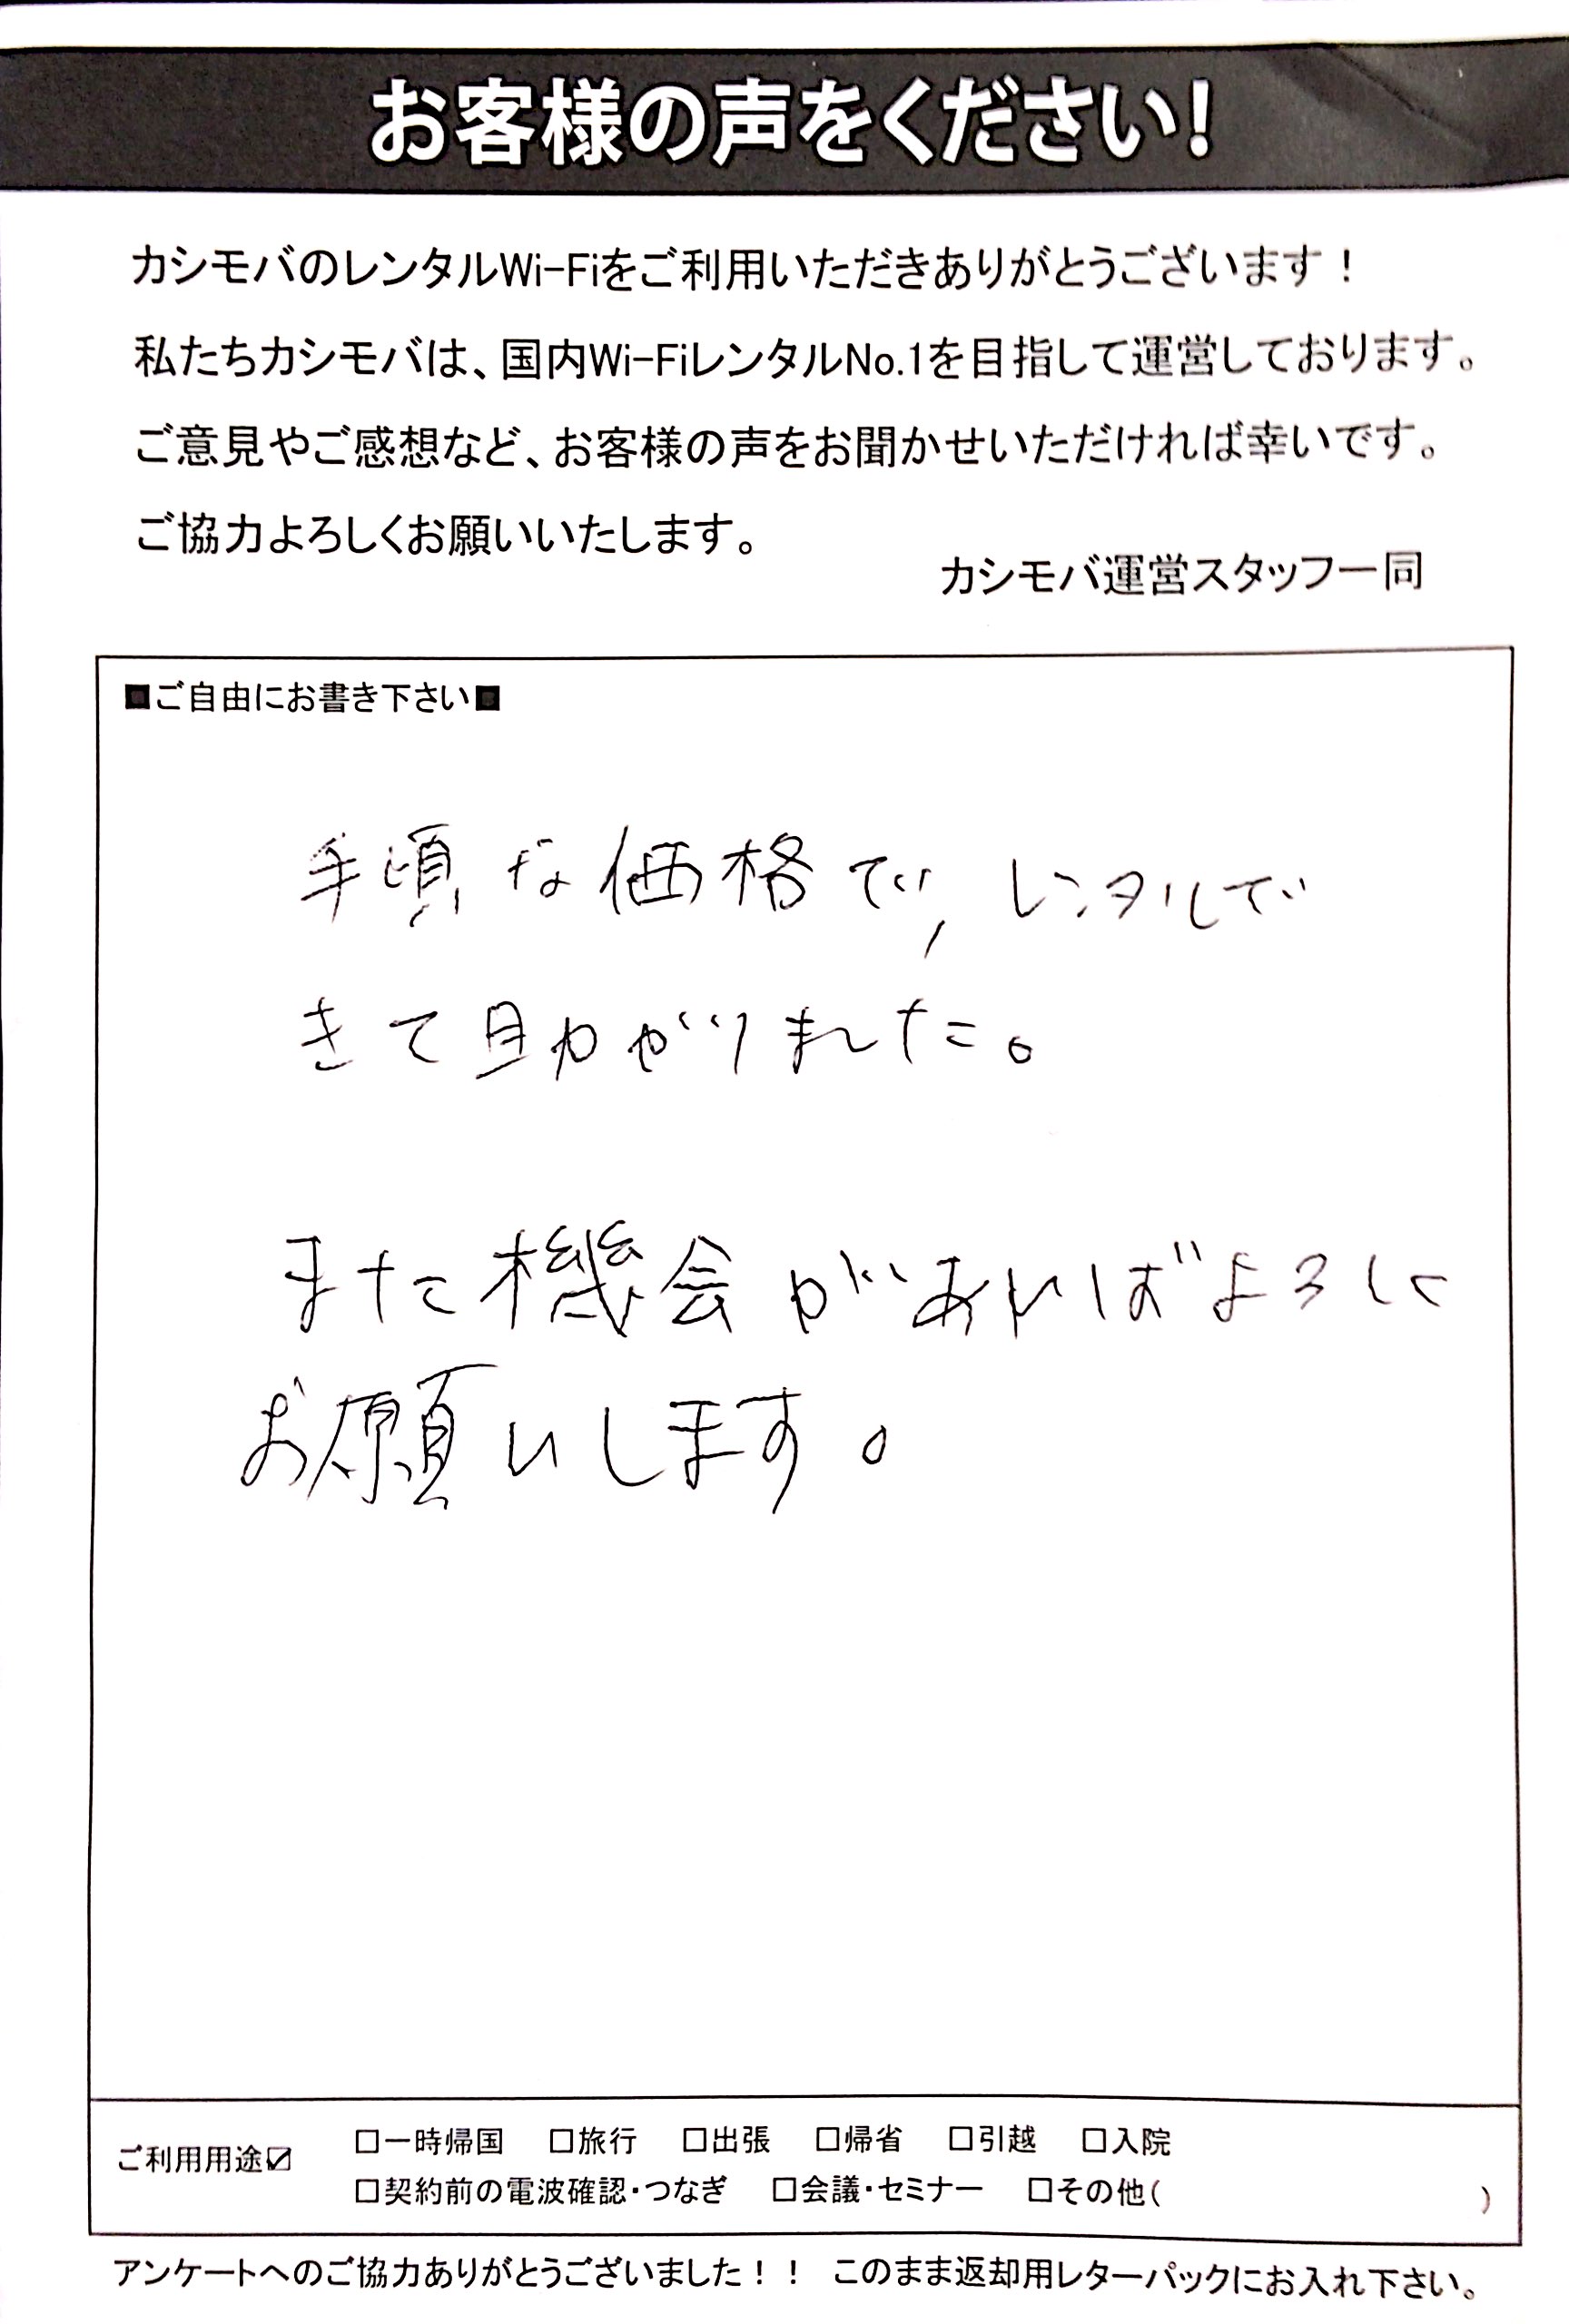 お客様の声をください!
カシモバのレンタルWi-Fiをご利用いただきありがとうございます！
私たちカシモバは、国内Wi-FiレンタルNo.1を目指して運営しております。
ご意見やご感想など、お客様の声をお聞かせいただければ幸いです。
ご協力よろしくお願いいたします。
カシモバ運営スタッフ一同
■ご自由にお書き下さい■
手頃な価格で、レンタルで
きて助かりました。
また機会があればよろしく
お願いします。
ご利用用途☑ □一時帰国 □旅行 □出張 □帰省 □引越 □入院
□契約前の電波確認・つなぎ □会議・セミナー □その他( )
アンケートへのご協力ありがとうございました！！ このまま返却用レターパックにお入れ下さい。